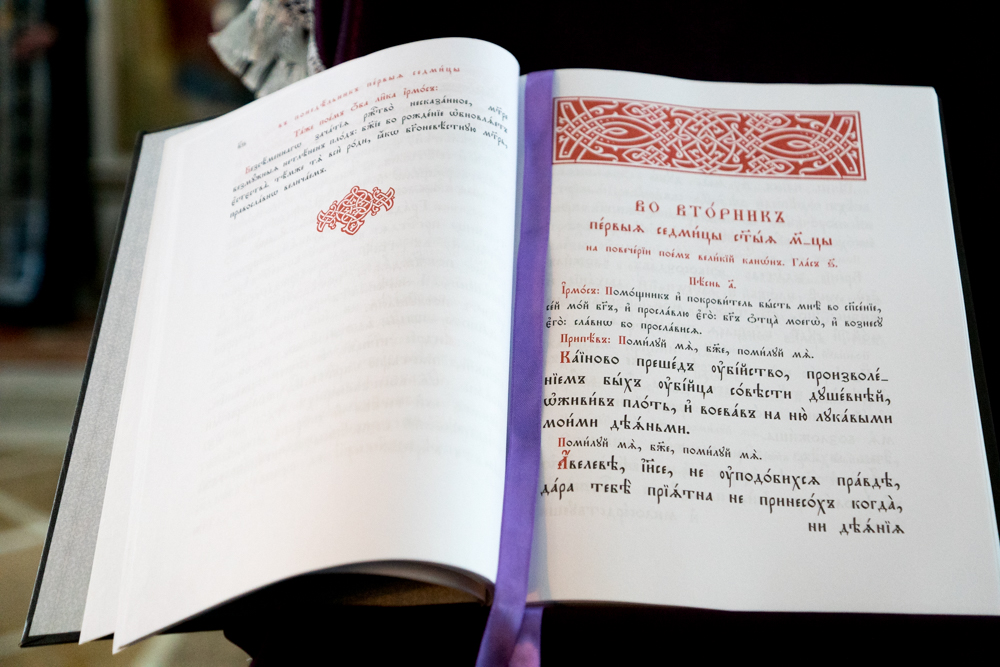 въ понедѣльникъ пе́рвыѧ седми́цы
Та́же пое́мъ ѻ҆́ба ли́ка і҆рмо́съ:
Безсѣ́меннагѡ зача́тїѧ ржⷭ҇тво̀ несказа́нное, мт҃ре
безму́жныѧ нетлѣ́ненъ пло́дъ: бж҃їе бо рожде́нїе ѡ҆бновлѧ́етъ
є҆стєства̀. тѣ́мже тѧ̀ всѝ ро́ди, ꙗ҆́кѡ бг҃оневѣ́стную мт҃рь,
правосла́внѡ велича́емъ.
ВО ВТО́РНИКЪ
пе́рвыѧ седми́цы ст҃ы́ѧ м҃_цы
на повече́рїи пое́мъ вели́кїй канѡ́нъ. Гла́съ ѕ҃.
Пѣ́снь а҃.
І҆рмо́съ: Помо́щникъ и҆ покрови́тель бы́сть мнѣ̀ во сп҃се́нїе,
се́й мо́й бг҃ъ, и҆ просла́влю є҆го̀: бг҃ъ ѻ҆тца̀ моегѡ̀, и҆ вознесу̀
є҆го̀: сла́внѡ бо просла́висѧ.
Припѣ́въ: Поми́луй мѧ̀, бж҃е, поми́луй мѧ̀.
Ка́їново преше́дъ ᲂу҆бі́йство, произволе́_
нїемъ бы́хъ ᲂу҆бі́йца со́вѣсти душе́внѣй,
ѡ҆живи́въ пло́ть, и҆ воева́въ на ню̀ лука́выми
мои́ми дѣѧ́ньми.
Поми́луй мѧ̀, бж҃е, поми́луй мѧ̀.
А҆́велевѣ, і҆и҃се, не ᲂу҆подо́бихсѧ пра́вдѣ,
да́ра тебѣ̀ прїѧ́тна не принесо́хъ когда̀,
ни дѣѧ́нїѧ